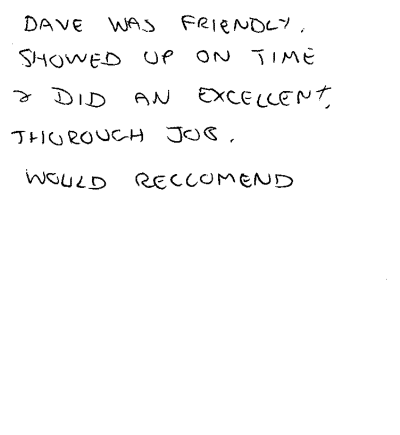 DAVE WAS FRIENDLY.
SHOWED UP ON TIME
& DID AN EXCELLENT,
THOROUGH JOB.
WOULD RECCOMEND